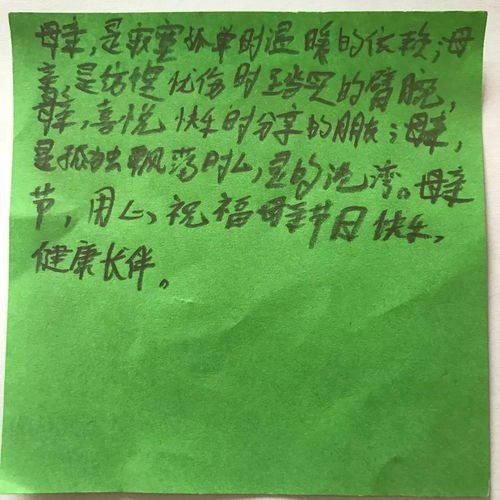 母亲,是寂寞孤单时温暖的依赖;母
亲,是彷惶忧伤时坚实的臂腕,
母亲,喜悦快乐时分享的朋友;母亲,
是孤独飘荡时心灵的港湾。母亲
节,用心祝福母亲节日快乐,
健康长伴。